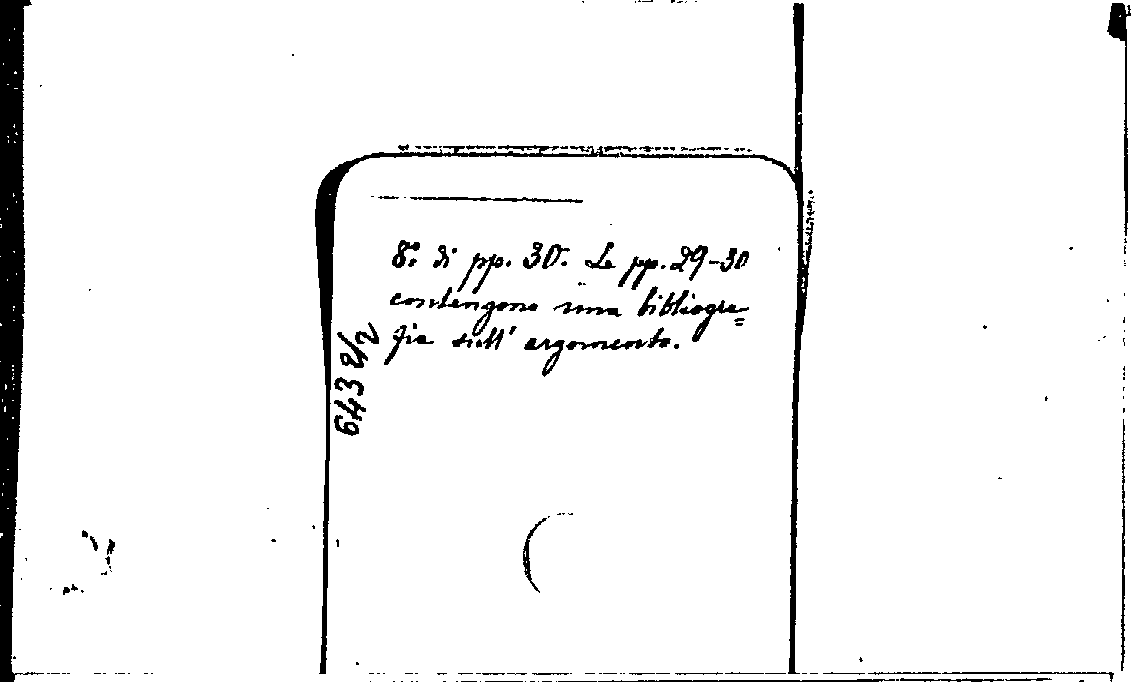 8º di pp. 30. Le pp. 29-30
contengono una bibliogra=
fia sull' argomento.
643 2/2